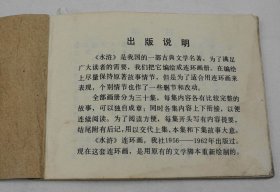 出版说明
《水浒》是我国的一部古典文学名著。为了满足
广大读者的需要，我们把它编绘成连环画册。在编绘
上尽量保持原著故事情节，但是为了适合用连环画来
表现，个别情节也作了一些删节和改动。
全部画册分为三十集，每集内容各有比较完整的
故事，可以独自成章；同时各集内容上下衔接，以便
连续阅读。为了阅读方便，每集开头写有内容提要，
结尾附有后记，用以交代上集、本集和下集故事大意。
《水浒》连环画，我社1956—1962年出版过。
现在这套连环画，是用原有的文学脚本重新绘制的。